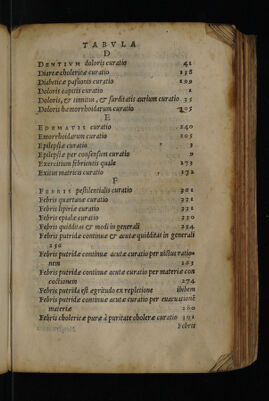 TABVLA
D
DENTIVM doloris curatio 41
Diareæ cholericæ curatio 138
Diabeticæ passionis curatio 199
Doloris capitis curatio 1
Doloris, & tinnitus, & surditatis aurium curatio 35
Doloris hæmorrhoidarum curatio 205
E
EDEMATIS curatio 240
Emorrhoidarum curatio 205
Epilepsiæ curatio 3
Epilepsiæ per consensum curatio 9
Exercitium febrientis quale 273
Exitus matricis curatio 172
F
FEBRIS pestilentialis curatio 301
Febris quartanæ curatio 321
Febris lipiriæ curatio 331
Febris epialæ curatio 330
Febris quidditas & modi in generali 254
Febris putridæ continuæ & acutæ quidditas in generali
250
Febris putridæ continuæ acutæ curatio per victus ratio-
nem 263
Febris putridæ continuæ acutæ curatio per materiæ con
coctionem 274
Febris putrida est ægritudo ex repletione ibidem
Febris putridæ continuæ acutæ curatio per euacuationē
materiæ 280
Febris cholericæ puræ à puritate choleræ curatio 301
Febris